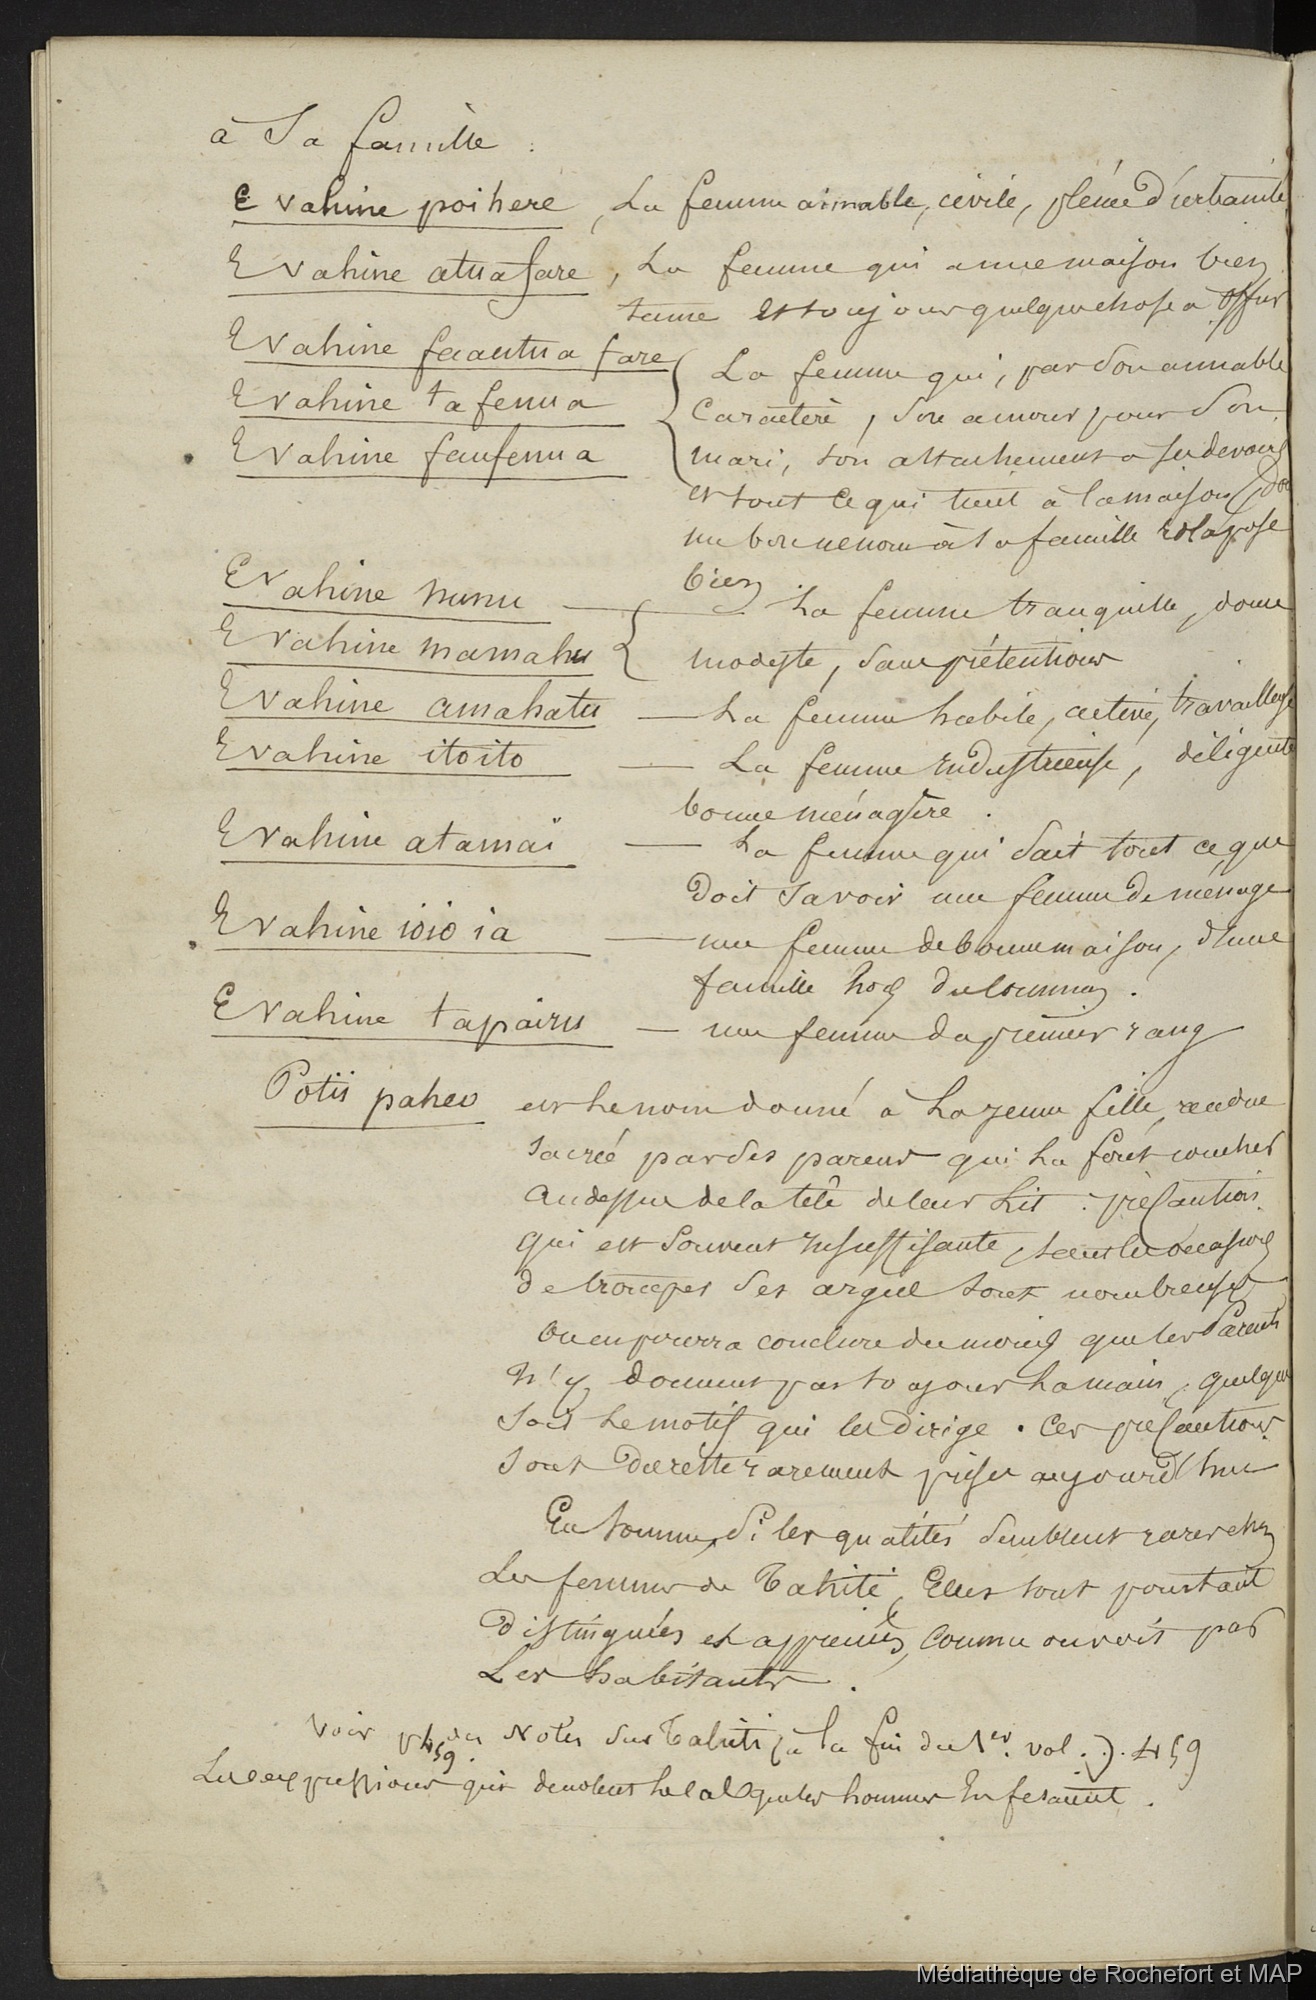 à Sa famille.
E vahine poihere, La femme aimable, civile, pleine d'urbanité
E vahine atuafare, La femme qui a une maison bien
tenue et toujours quelque chose à offrir
E vahine faautua fare La femme qui, par son aimable
E vahine tafenua caractère, son amour pour son
E vahine faufenua mari, son attachement à ses devoirs
et tout ce qui tient à la maison, do
un bon renom à sa famille et la pose
bien
E vahine nunu — La femme tranquille, douce
E vahine mamahu modeste, sans prétentions
E vahine amahatu — La femme habile, active, travailleuse
E vahine itoito — La femme industrieuse, diligente
bonne ménagère.
E vahine atamaï — La femme qui sait tout ce que
doit savoir une femme de ménage
E vahine ioio ia — une femme de bonne maison, d'une
famille hors du commun.
E vahine tapairu — une femme du premier rang
Potii paheo est le nom donné à La jeune fille, rendue
sacrée par ses parens qui La font coucher
au dessus de la tête de leur Lit : précaution
qui est souvent insuffisante, tant les occasions
de tromper ses argus sont nombreuses
on en pourra conclure du moins que les Parents
n'y donnent pas toujours La main, quelque
soit Le motif qui les dirige. Ces précautions
sont du reste rarement prises aujourd'hui
En somme, Si les qualités semblent rares chez
Les femmes de Tahiti, Elles sont pourtant
distinguées et appréciées, comme on voit par
Les habitants.
voir p 459 des Notes sur Tahiti (à la fin du 1er. vol.). 459
Les expressions qui dénotent le cas que les hommes En fesaient.
Médiathèque de Rochefort et MAP